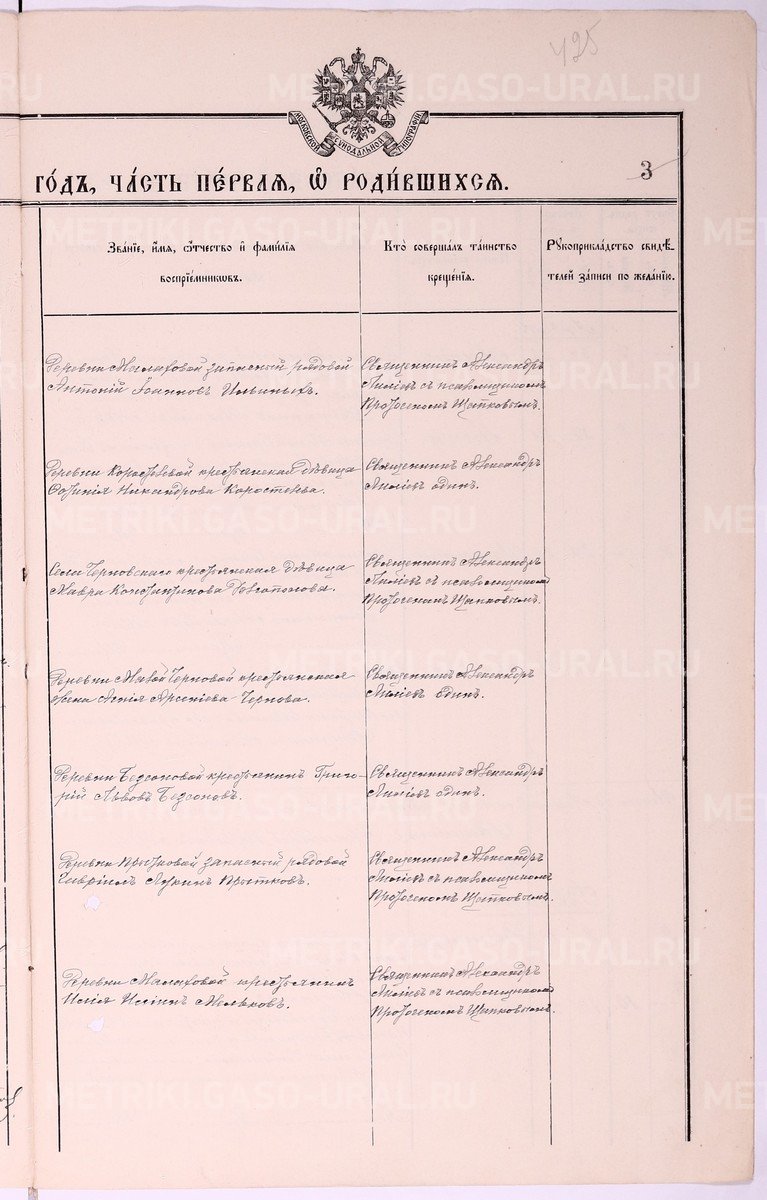 425
МОСКОВСКОЙ СѴНОДАЛЬНОЙ ТИПОГРАФІИ
ГО́ДЪ, ЧА́СТЬ ПЕ́РВАЯ, Ѡ҆ РОДИ́ВШИХСЯ.
3
Зва́нїе, и҆́мя, ѻ҆́тчество и҆ фами́лїя
воспрїе́мникѡвъ.
Кто̀ соверша́лъ та́инство
креще́нїя.
Рꙋкоприкла́дство свидѣ́-
телей за́писи по жела́нїю.
Деревни Малаховой запасный рядовой
Антоній Іоанновъ Ильиныхъ.
Священникъ Александръ
съ псаломщикомъ
Щепковымъ.
Деревни Коростелевой крестьянская дѣвица
Никандрова Коростелева.
Священникъ Александръ
одинъ.
Села Черновскаго крестьянская дѣвица
Мавра Константинова
Священникъ Александръ
съ псаломщикомъ
Щепковымъ.
Деревни Малой Черновой крестьянская
жена Арсеніева Чернова.
Священникъ Александръ
одинъ.
Деревни Бедсоновой крестьянинъ Григо-
рій Львовъ Бедсоновъ.
Священникъ Александръ
одинъ.
Деревни Прытковой запасный рядовой
Гавріилъ Прытковъ.
Священникъ Александръ
съ псаломщикомъ
Щепковымъ.
Деревни Малаховой крестьянинъ
Илія Мельковъ.
Священникъ Александръ
съ псаломщикомъ
Щепковымъ.
METRIKI.GASO-URAL.RU